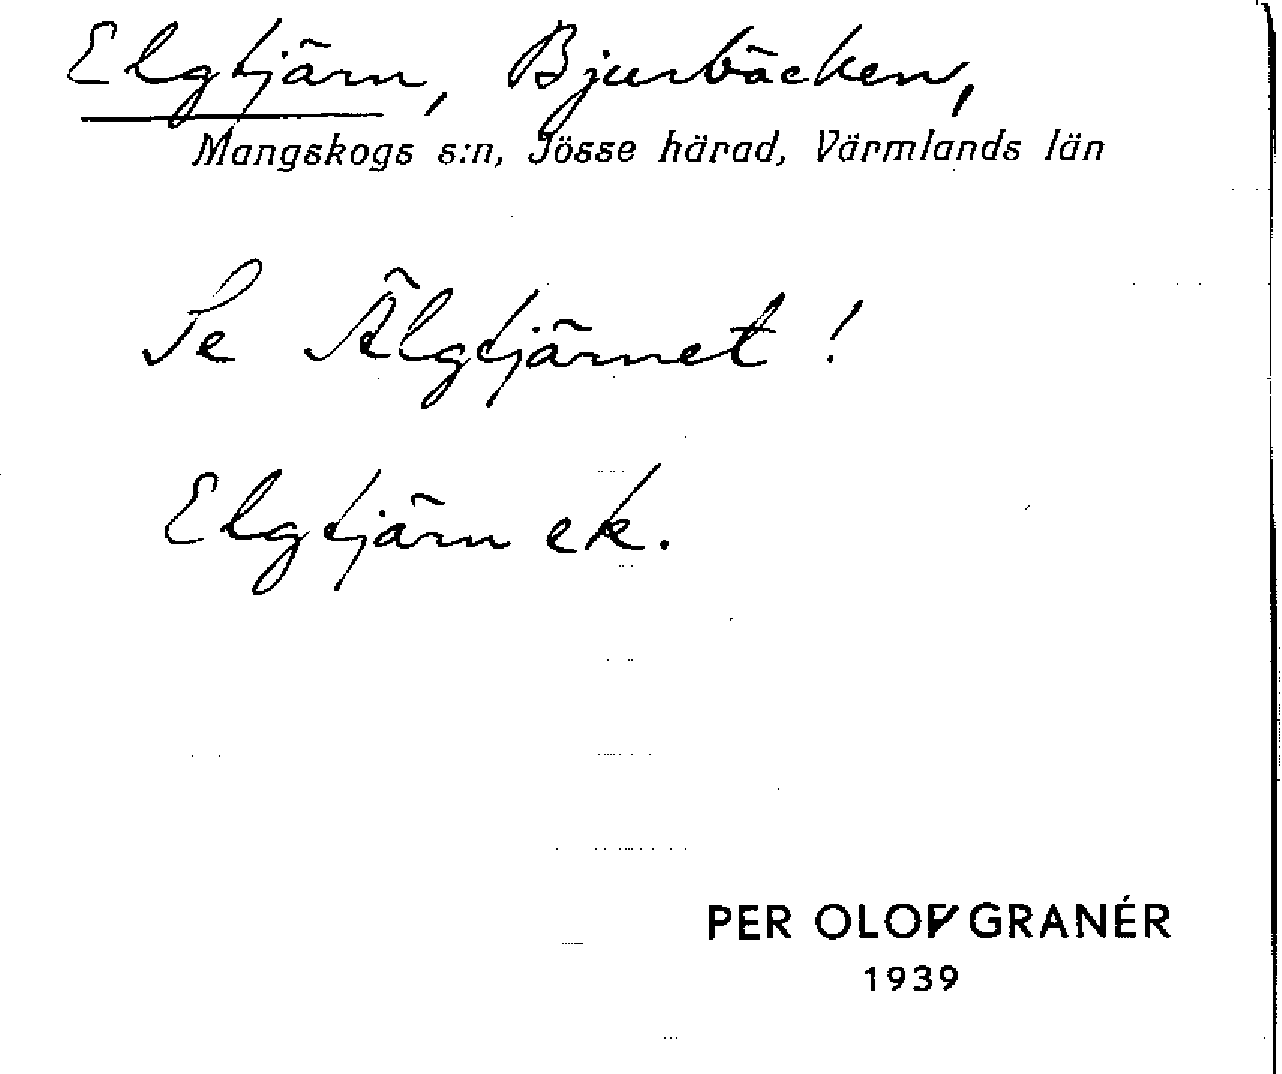 Elgtjärn, Bjurbäcken,
Mangskogs s:n, Jösse härad, Värmlands län
Se Älgtjärnet !
Elgtjärn ek.
PER OLOF GRANÉR
1939